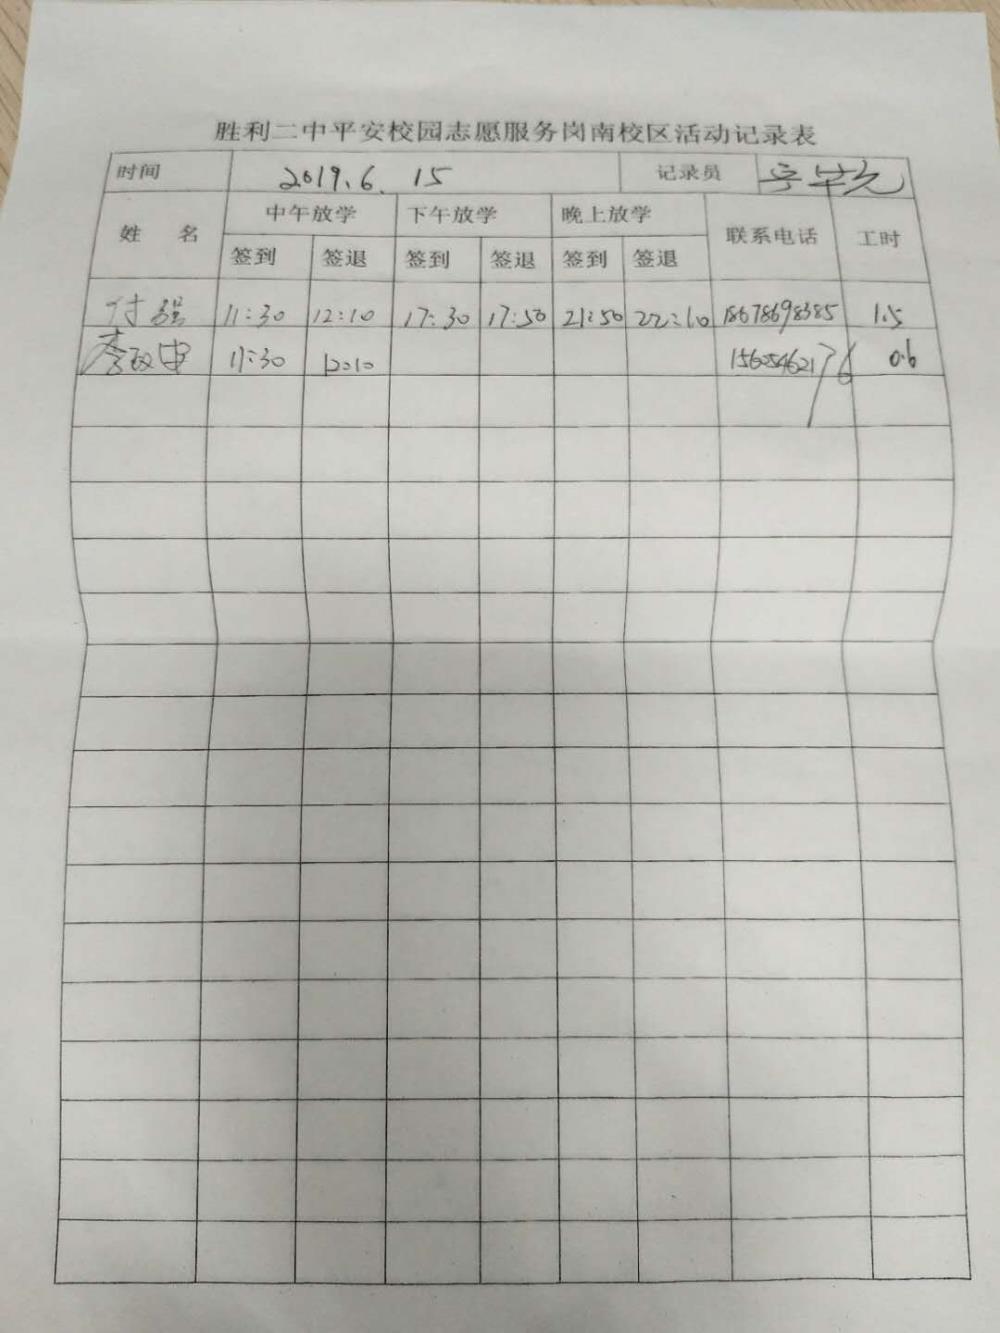 胜利二中平安校园志愿服务岗南校区活动记录表
时间 2019.6.15 记录员
姓 名 中午放学 下午放学 晚上放学 联系电话 工时
签到 签退 签到 签退 签到 签退
付强 11:30 12:10 17:30 17:50 21:50 22:10 18678698385 1.5
11:30 12:10 15605462176 0.6